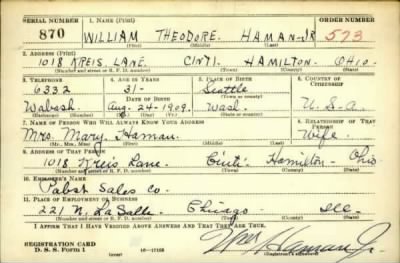 SERIAL NUMBER 1. NAME (Print) ORDER NUMBER
870 WILLIAM THEODORE. HAMAN-JR 573
(First) (Middle) (Last)
2. ADDRESS (Print)
1018 KREIS LANE. CINTI. HAMILTON. OHIO.
(Number and street or R. F. D. number) (Town) (County) (State)
3. TELEPHONE 4. AGE IN YEARS 5. PLACE OF BIRTH 6. COUNTRY OF CITIZENSHIP
6332 31- Seattle
DATE OF BIRTH (Town or county)
Wabash Aug. 24-1909. Wash. U.S.A.
(Exchange) (Mo.) (Day) (Yr.) (State or country)
7. NAME OF PERSON WHO WILL ALWAYS KNOW YOUR ADDRESS 8. RELATIONSHIP OF THAT PERSON
Mrs. Mary Haman Wife
(Mr., Mrs., Miss) (First) (Middle) (Last)
9. ADDRESS OF THAT PERSON
1018 Kreis Lane Cinti- Hamilton- Ohio
(Number and street or R. F. D. number) (Town) (County) (State)
10. EMPLOYER'S NAME
Pabst Sales Co.
11. PLACE OF EMPLOYMENT OR BUSINESS
221 N. La Salle Chicago Ill
(Number and street or R. F. D. number) (Town) (County) (State)
I AFFIRM THAT I HAVE VERIFIED ABOVE ANSWERS AND THAT THEY ARE TRUE.
REGISTRATION CARD
D. S. S. Form 1 16-17105 Haman Jr.
(Registrant's signature)